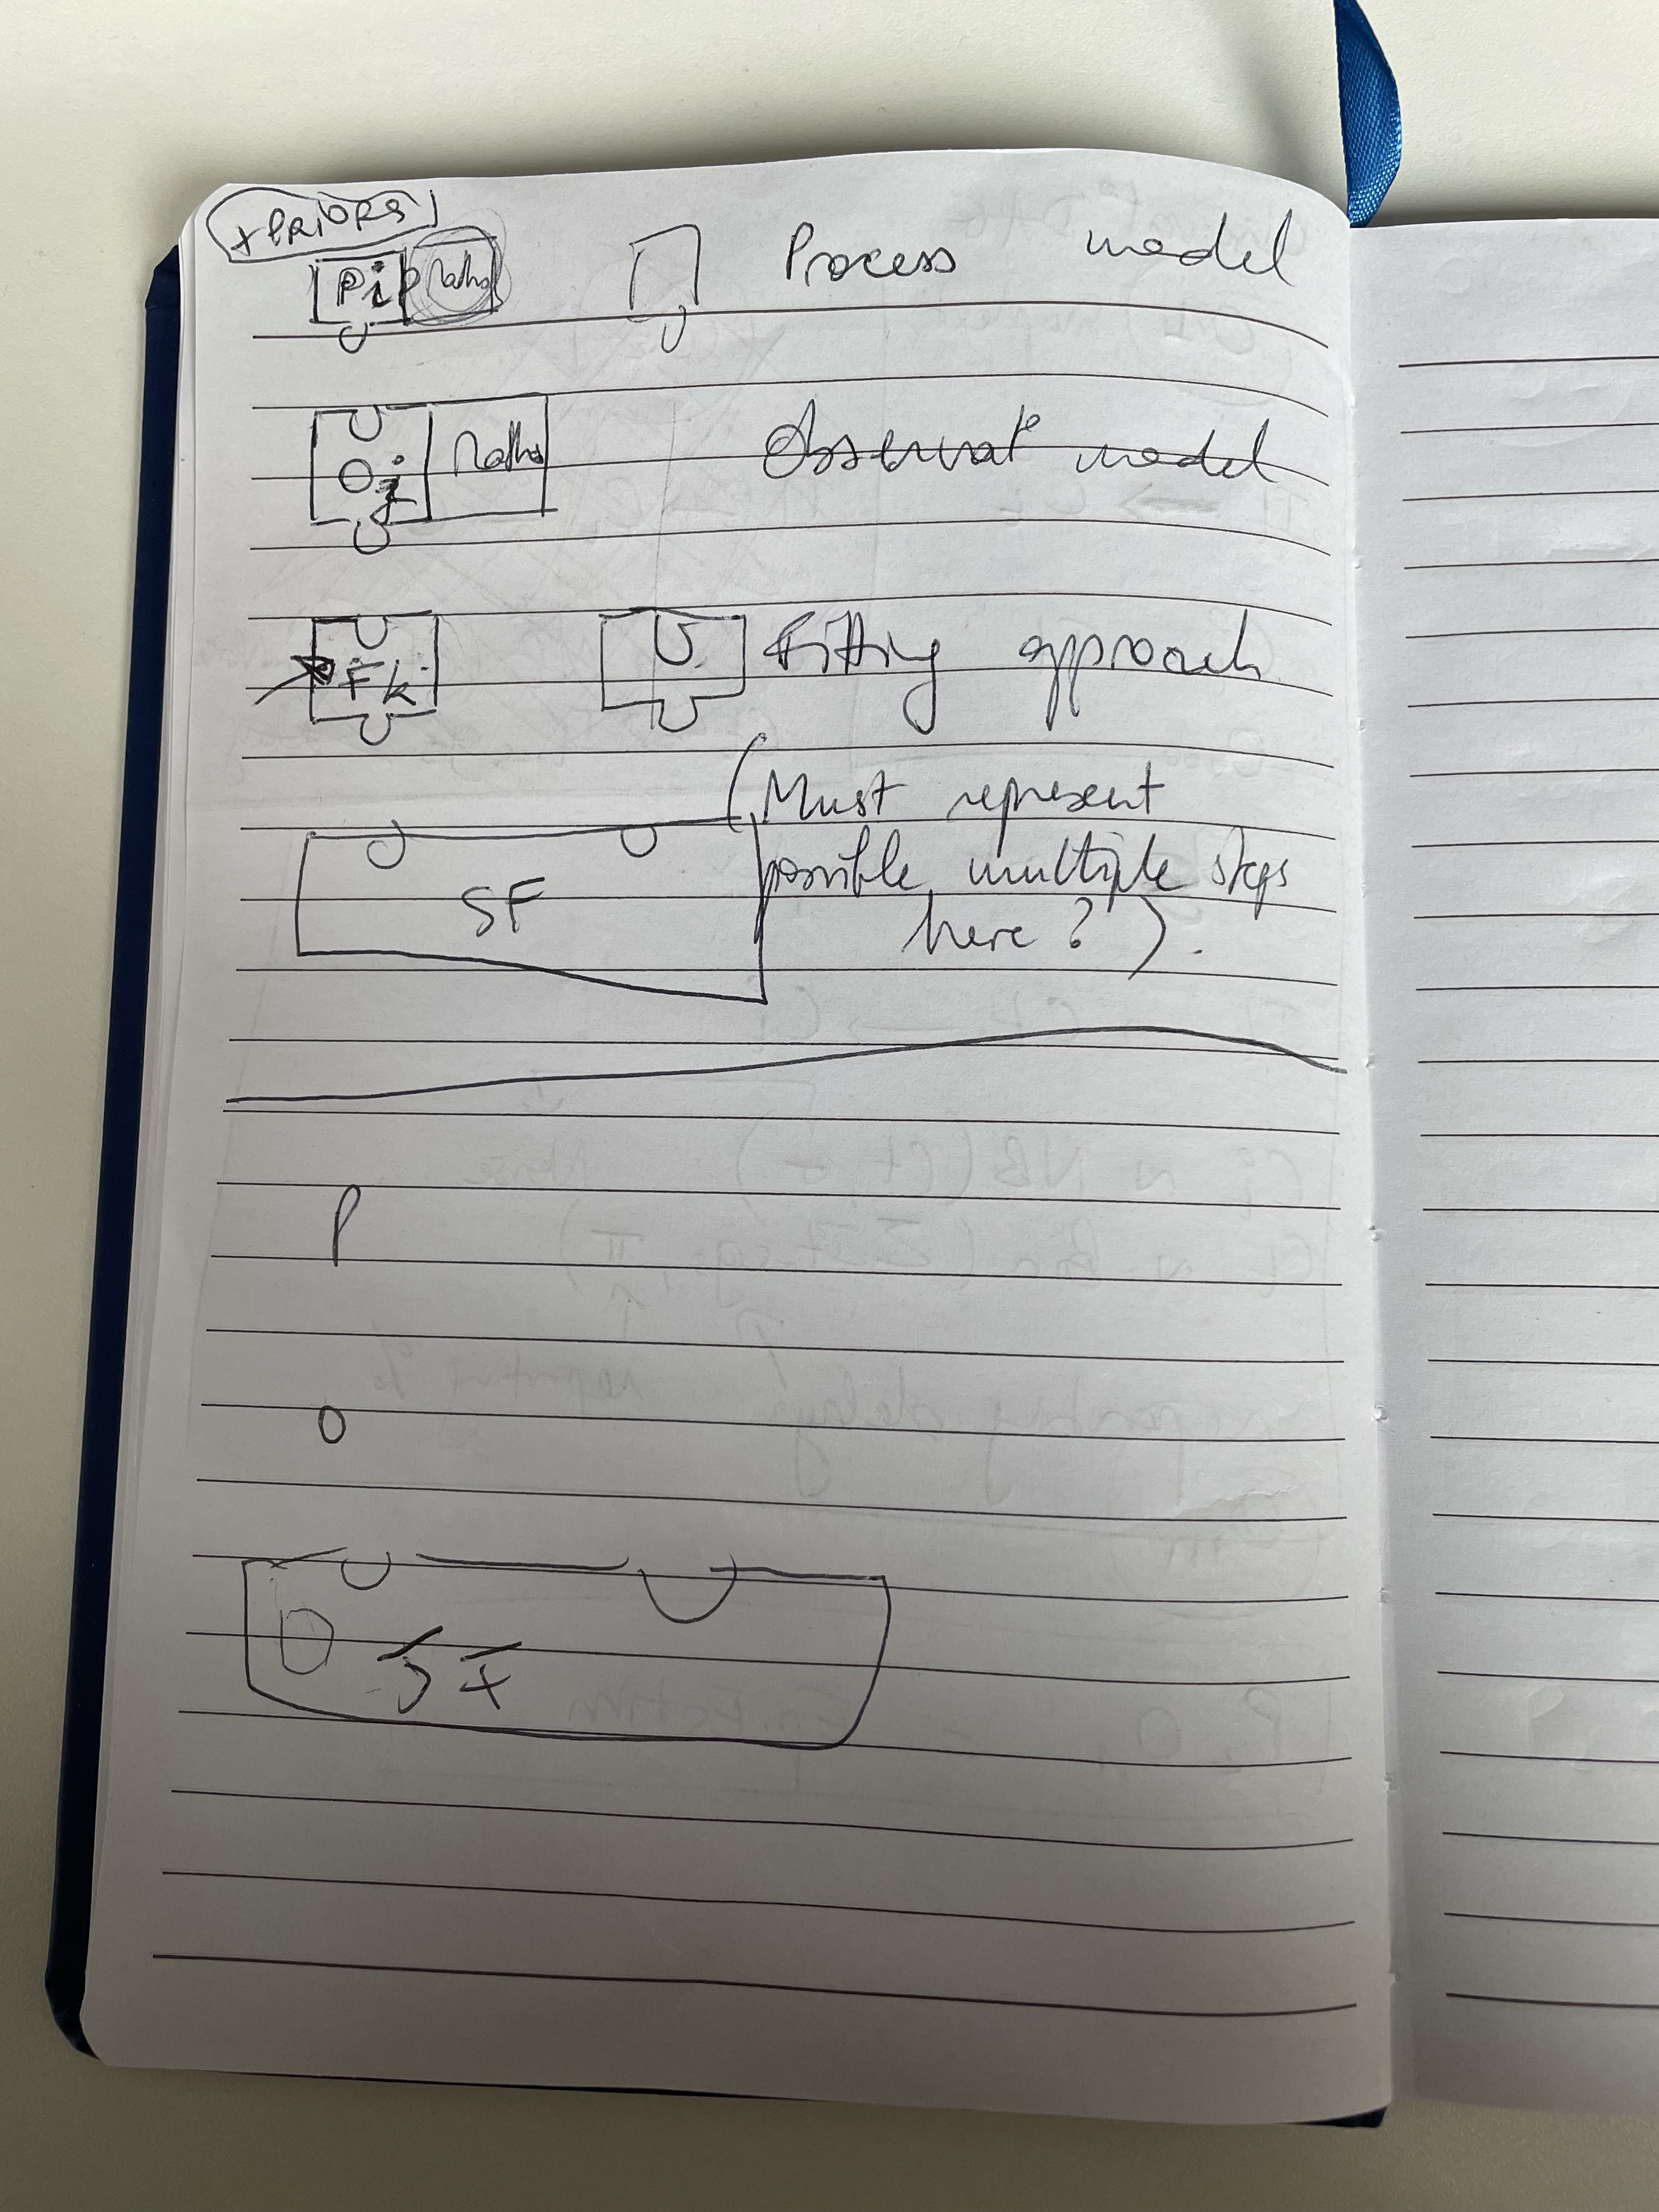 + PRIORS
Pi Maths Process model
Oj Maths Observat° model
Fk Fitting approach
(Must represent
possible multiple steps
SF here ? ).
P
O